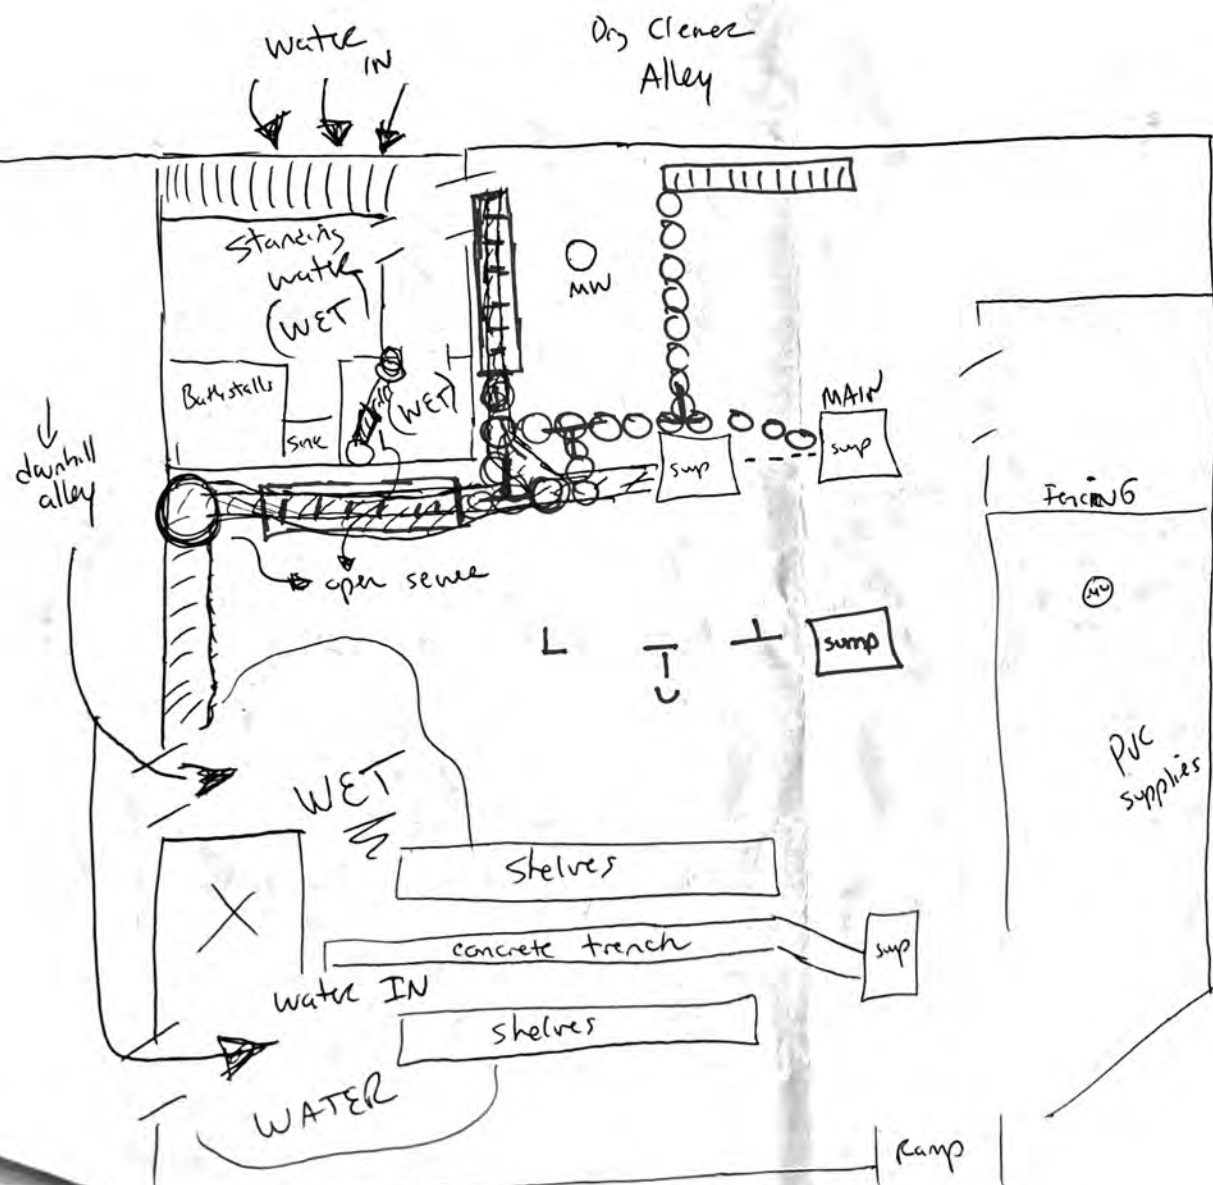 Water
IN
Dry Cleaner
Alley
Standing
water
(WET)
MW
Bathstalls
Sink
(WET)
MAIN
sump
sump
downhill
alley
FencinG
open sewer
MW
sump
PVC
supplies
WET
Shelves
concrete trench
sump
water IN
shelves
WATER
Ramp